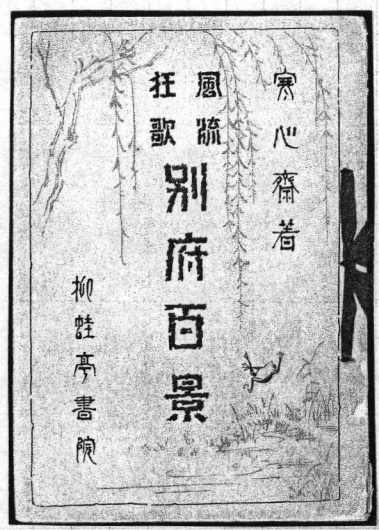 寒心齋著
風流
狂歌
別府百景
柳蛙亭書院